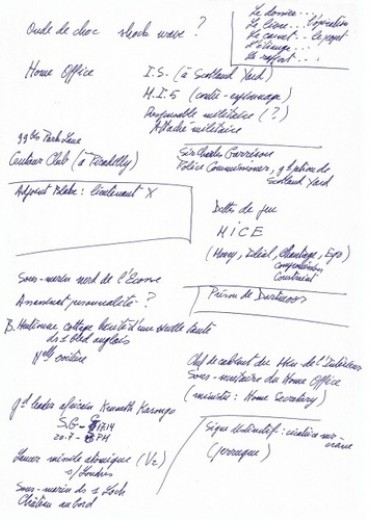 Onde de choc shock wave ?
Le dossier . . .
Le livre . . . l'opération
Le carnet . . le projet
d'étrange . . .
Le rapport . . .
Home Office
I.S. (à Scotland Yard)
M.I.5 (contre-espionnage)
Responsable militaire (?)
Attaché militaire
99 bis Park Lane
Centaur Club (à Picadilly)
Sir Charles Garrison
Police Commissioner, gd patron de
Scotland Yard
Adjoint Blake : lieutenant X
Dettes de jeu
MICE
(Money, Idéal, Chantage, Ego)
compromission
Constraint
Sous-marin nord de l'Ecosse
Assassinat personnalité ?
Prison de Dartmoor
B. Mortimer cottage hérité d'une vieille tante
ds 1 bled anglais
Nlle voiture
Chef de cabinet du Min de l'Intérieur
Sous-secrétaire du Home Office
(ministre : Home Secretary)
gd leader africain Kenneth Kasongo
S.G - 17.14
20.7 - 8 PM
Signe distinctif : cicatrice
(perruque)
Lancer missile atomique (V2)
s/Londres
Sous-marin ds 1 Loch
Château au bord